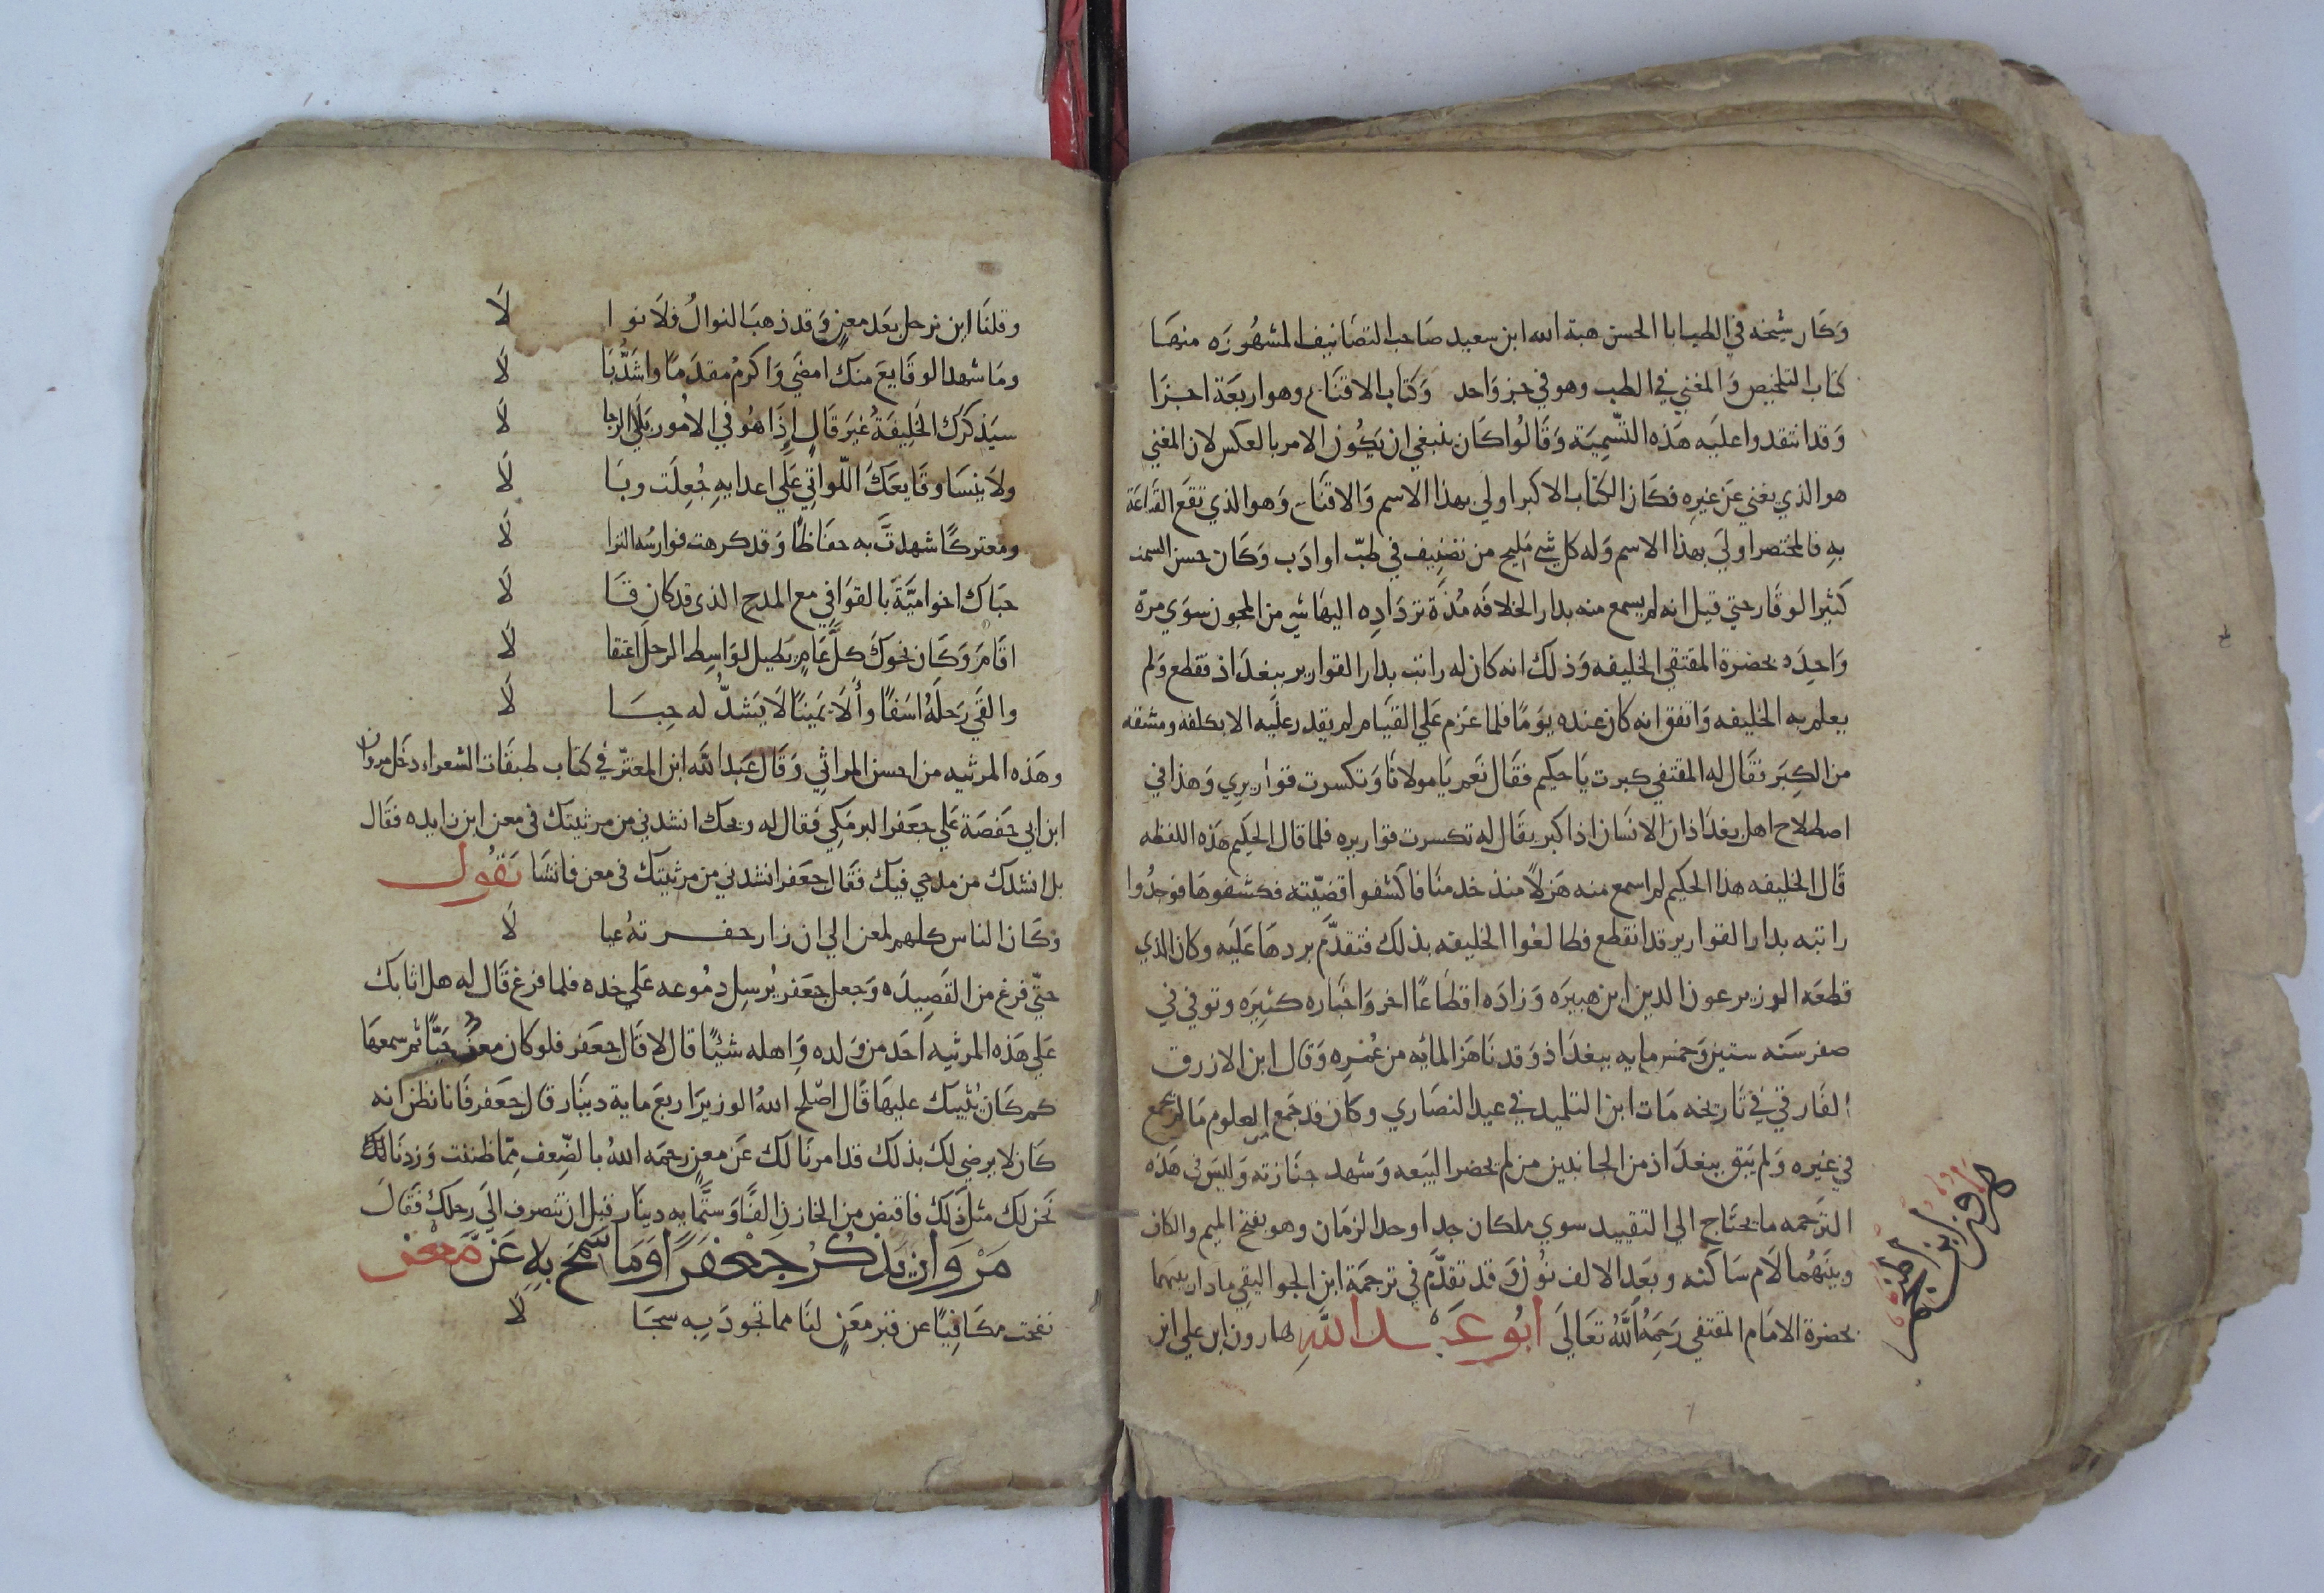 وكان شيخه في الطب ابا الحسن هبة الله ابن سعيد صاحب التصانيف المشهوره منها
كتاب التلخيص والمغني في الطب وهو في جز واحد وكتاب الاقناع وهو اربعة اجزا
وقد انتقدوا عليه هذه التسمية وقالوا كان ينبغي ان يكون الامر بالعكس لان المغني
هو الذي يغني عن غيره فكان الكتاب الاكبر اولي بهذا الاسم والاقناع وهو الذي تقع القناعة
به فالمختصر اولي بهذا الاسم وله كل شي مليح من تصنيف في طب او ادب وكان حسن السمت
كثير الوقار حتي قيل انه لم يسمع منه بدار الخلافه مدة تردادِه اليها شي من المجون سوي مرة
واحده بحضرة المقتفي الخليفه وذلك انه كان له راتب بدار القوارير ببغداذ فقطع ولم
يعلم به الخليفه واتفق انه كان عنده يومًا فلما عزم علي القيام لم يقدر عليه الا بكلفه ومشقه
من الكبر فقال له المقتفي كبرت يا حكيم فقال نعم يا مولانا وتكسرت قواريري وهذا في
اصطلاح اهل بغداذ ان الانسان اذا كبر يقال له تكسرت قواريره فلما قال الحكيم هذه اللفظه
قال الخليفه هذا الحكيم لم اسمع منه هزلاً منذ خدمنا فاكشفوا قضيّته فكشفوها فوجدوا
راتبه بدار القوارير قد انقطع فطالعوا الخليفه بذلك فتقدّم بردها عليه وكان الذي
قطعه الوزير عون الدين ابن هبيره وزاده اقطاعًا اخر واخباره كثيره وتوفي في
صفر سنه ستين وخمس مايه ببغداذ وقد ناهز المائه من عمره وقال ابن الازرق
الفارقي في تاريخه مات ابن التلميذ في عيد النصاري وكان قد جمع العلوم ما لم تجمع
في غيره ولم يبق ببغداذ من الجانبين من لم يحضر البيعه وشهد جنازته وليس في هذه
الترجمه ما يحتاج الي التقييد سوي ملكان جد اوحد الزمان وهو بفتح الميم والكاف
وبينهما لام ساكنه وبعد الالف نون وقد تقدّم في ترجمة ابن الجواليقي ما دار بينهما
بحضرة الامام المقتفي رحمه الله تعالي ابو عبد الله هارون ابن علي ابن
هرون ابن المنجم
وقلنا اين نرحل بعد معن وقد ذهب النوال فلا نوا لا
وما شهد الوقايع منك امضي واكرم مقدمًا واشد با لا
سيذكرك الخليفة غير قال اذا هو في الامور بلي الرجا لا
ولا ينسا وقايعك اللواتي علي اعدايه جعلت وبا لا
ومعتركًا شهدت به حفاظًا وقد كرهت فوارسه النزا لا
حباك اخو امية بالقوافي مع المدح الذي قد كان قا لا
اقام وكان نحوك كل عام يطيل لواسط الرحل اعتقا لا
والقي رحله اسفًا وألا يمينًا لا يشد له حبا لا
وهذه المرثيه من احسن المراثي وقال عبد الله ابن المعتز في كتاب طبقات الشعراء دخل مروان
ابن ابي حفصة علي جعفر البرمكي فقال له ويحك انشدني من مرثيتك في معن ابن زايده فقال
بل انشدك من مدحي فيك فقال جعفر انشدني من مرثيتك في معن فانشا يقول
وكان الناس كلهم لمعن الي ان زار حفرته عيا لا
حتّي فرغ من القصيده وجعل جعفر يرسل دموعه علي خده فلما فرغ قال له هل اثابك
علي هذه المرثيه احد من ولده واهله شيئًا قال لا قال جعفر فلو كان معن حيًّا ثم سمعها
كم كان يثيبك عليها قال اصلح الله الوزير اربع ماية دينار قال جعفر فانا نظن انه
كان لا يرضي لك بذلك قد امرنا لك عن معن رحمه الله بالضعف مما ظننت وزدنا لك
نحن لك مثل ذلك فاقبض من الخازن الفًا وستمايه دينار قبل ان تنصرف الي رحلك فقال
مروان يذكر جعفرا وما سمح به عن معن
نفحت مكافيًا عن قبر معن لنا مما تجود به سجا لا